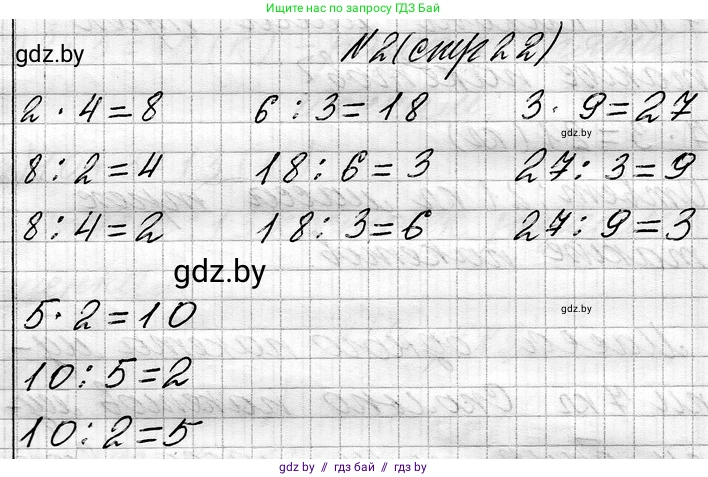 Ищите нас по запросу ГДЗ Бай
gdz.by
№2(стр 22)
2 · 4 = 8 6 : 3 = 18 3 · 9 = 27
gdz.by
8 : 2 = 4 18 : 6 = 3 27 : 3 = 9
8 : 4 = 2 18 : 3 = 6 27 : 9 = 3
gdz.by
5 · 2 = 10
gdz.by
10 : 5 = 2
10 : 2 = 5
gdz.by // гдз бай // gdz.by